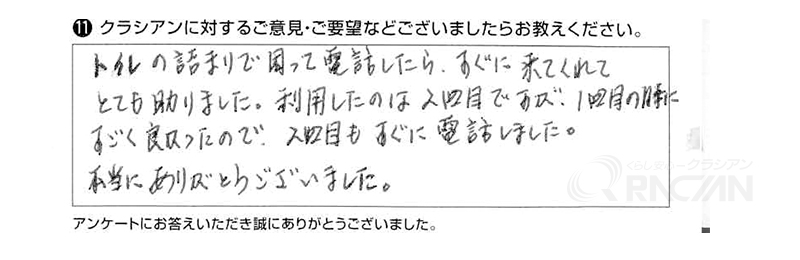 ⑪ クラシアンに対するご意見・ご要望などございましたらお教えください。
トイレの詰まりで困って電話したら、すぐに来てくれて
とても助りました。利用したのは2回目ですが、1回目の時に
すごく良かったので、2回目もすぐに電話しました。
本当にありがとうございました。
くらし安心クラシアン
QRACIAN
アンケートにお答えいただき誠にありがとうございました。